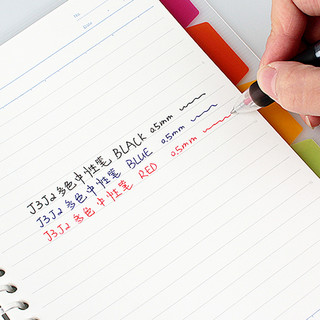 J3J2 多色中性笔 BLACK 0.5mm
J3J2 多色中性笔 BLUE 0.5mm
J3J2 多色中性笔 RED 0.5mm